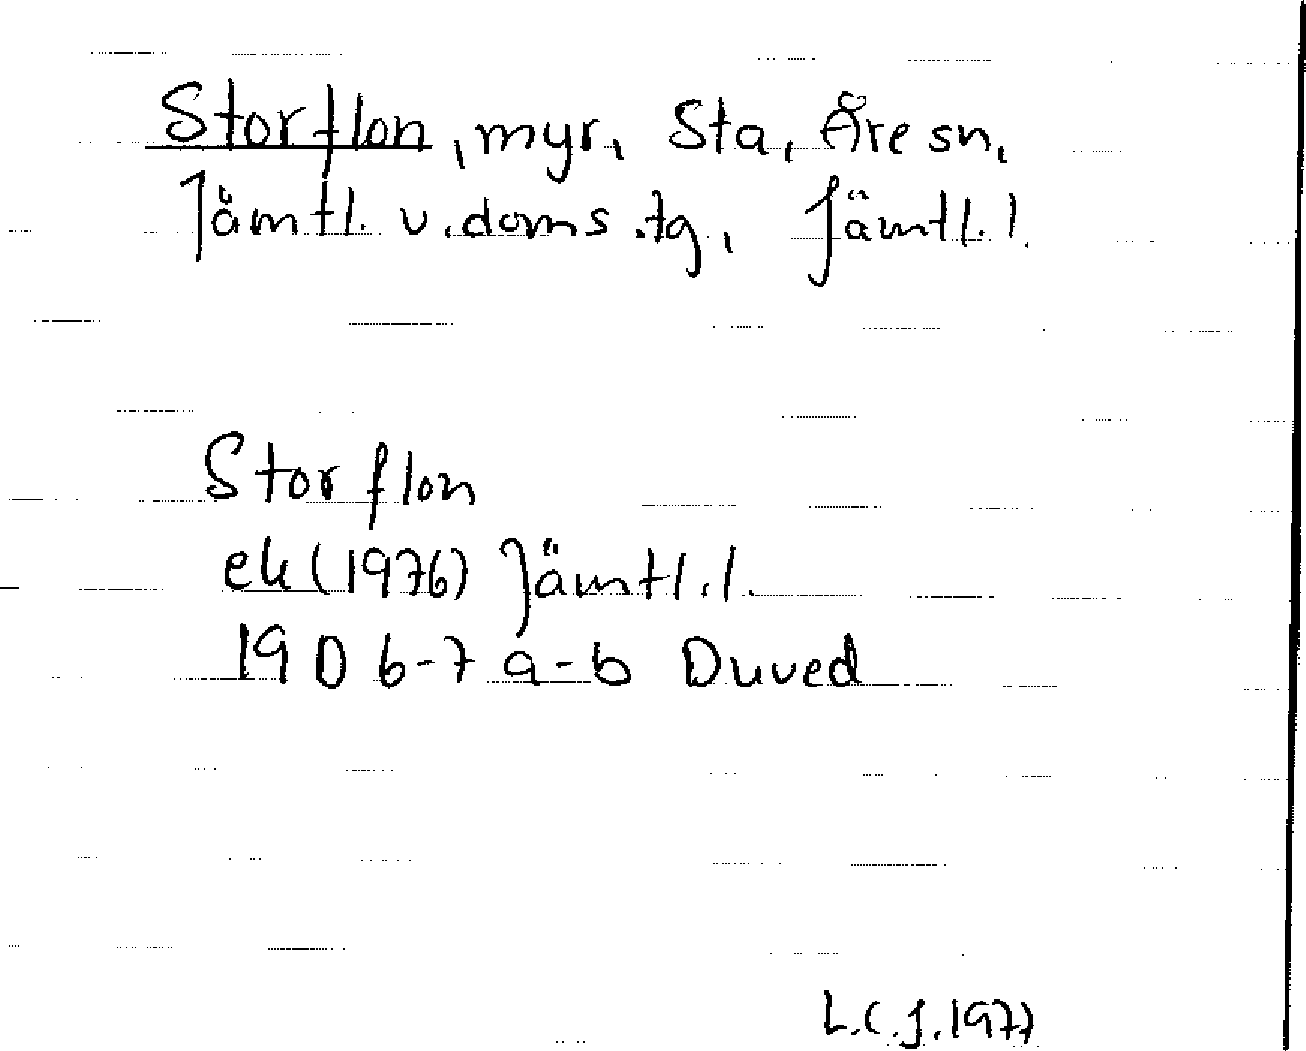 Storflon, myr, Sta, Åre sn,
Jämtl. v. doms.tg, Jämtl. l.
Storflon
ek (1976) Jämtl. l.
19 D 6-7 a-b Duved
L.C.J. 1977